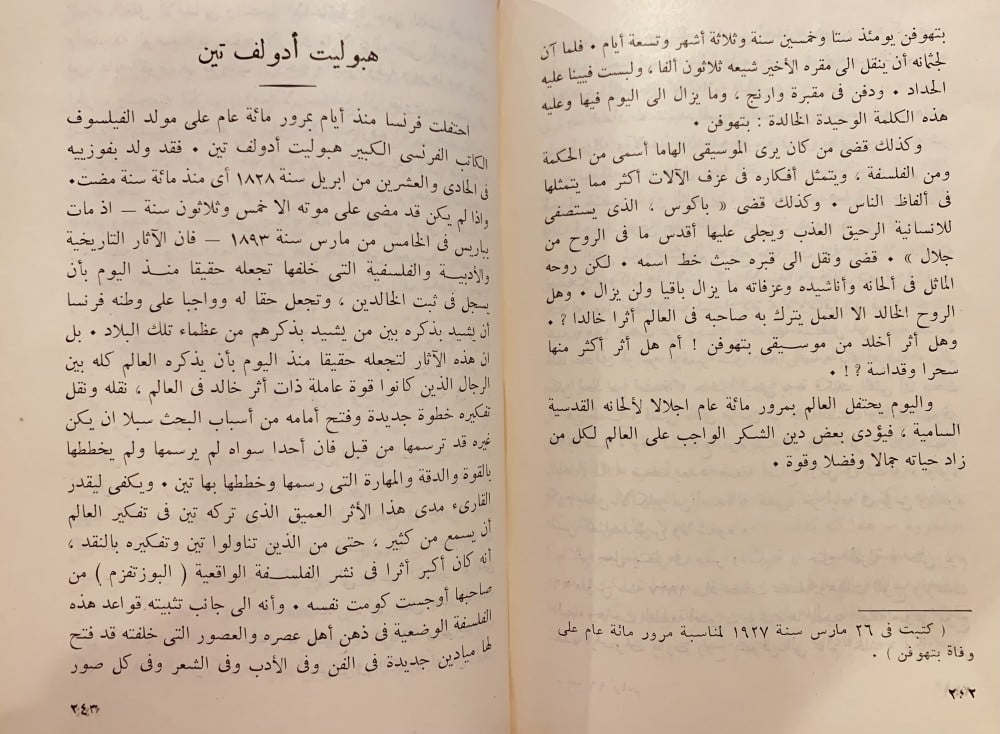 بتهوفن يومئذ ستا وخمسين سنة وثلاثة أشهر وتسعة أيام . فلما آن
لجثمانه أن ينقل الى مقره الأخير شيعه ثلاثون ألفا ، ولبست فيينا عليه
الحداد . ودفن فى مقبرة وارنج ، وما يزال الى اليوم فيها وعليه
هذه الكلمة الوحيدة الخالدة : بتهوفن .
وكذلك قضى من كان يرى الموسيقى الهاما أسمى من الحكمة
ومن الفلسفة ، ويتمثل أفكاره فى عزف الآلات أكثر مما يتمثلها
فى ألفاظ الناس . وكذلك قضى « باكوس ، الذى يستصفى
للانسانية الرحيق العذب ويجلى عليها أقدس ما فى الروح من
جلال » . قضى ونقل الى قبره حيث خط اسمه . لكن روحه
الماثل فى ألحانه وأناشيده وعزفاته ما يزال باقيا ولن يزال . وهل
الروح الخالد الا العمل يترك به صاحبه فى العالم أثرا خالدا ? .
وهل أثر أخلد من موسيقى بتهوفن ! أم هل أثر أكثر منها
سحرا وقداسة ? ! .
واليوم يحتفل العالم بمرور مائة عام اجلالا لألحانه القدسية
السامية ، فيؤدى بعض دين الشكر الواجب على العالم لكل من
زاد حياته جمالا وفضلا وقوة .
( كتبت فى ٢٦ مارس سنة ١٩٢٧ لمناسبة مرور مائة عام على
وفاة بتهوفن ) .
هبوليت أدولف تين
احتفلت فرنسا منذ أيام بمرور مائة عام على مولد الفيلسوف
الكاتب الفرنسى الكبير هبوليت أدولف تين . فقد ولد بفوزييه
فى الحادى والعشرين من ابريل سنة ١٨٢٨ أى منذ مائة سنة مضت.
واذا لم يكن قد مضى على موته الا خمس وثلاثون سنة — اذ مات
بباريس فى الخامس من مارس سنة ١٨٩٣ — فان الآثار التاريخية
والأدبية والفلسفية التى خلفها تجعله حقيقا منذ اليوم بأن
يسجل فى ثبت الخالدين ، وتجعل حقا له وواجبا على وطنه فرنسا
أن يشيد بذكره بين من يشيد بذكرهم من عظماء تلك البلاد . بل
ان هذه الآثار لتجعله حقيقا منذ اليوم بأن يذكره العالم كله بين
الرجال الذين كانوا قوة عاملة ذات أثر خالد فى العالم ، نقله ونقل
تفكيره خطوة جديدة وفتح أمامه من أسباب البحث سبلا ان يكن
غيره قد ترسمها من قبل فان أحدا سواه لم يرسمها ولم يخططها
بالقوة والدقة والمهارة التى رسمها وخططها بها تين . ويكفى ليقدر
القارىء مدى هذا الأثر العميق الذى تركه تين فى تفكير العالم
أن يسمع من كثير ، حتى من الذين تناولوا تين وتفكيره بالنقد ،
أنه كان أكبر أثرا فى نشر الفلسفة الواقعية ( البوزتفزم ) من
صاحبها أوجست كومت نفسه . وأنه الى جانب تثبيته قواعد هذه
الفلسفة الوضعية فى ذهن أهل عصره والعصور التى خلفته قد فتح
لها ميادين جديدة فى الفن وفى الأدب وفى الشعر وفى كل صور
٢٤٣